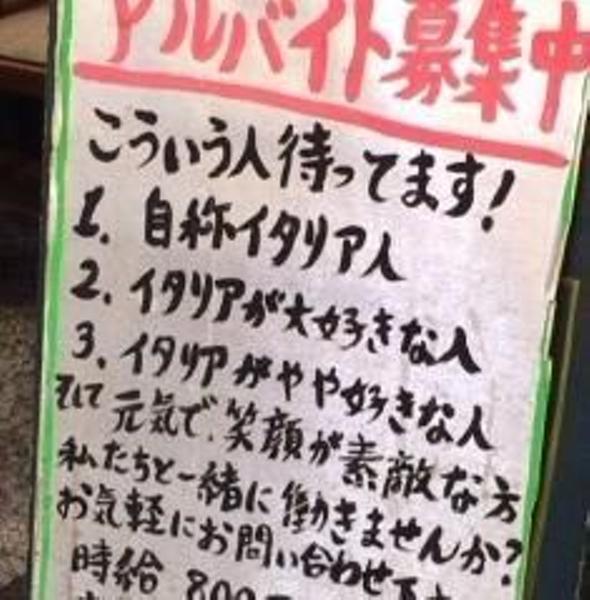 アルバイト募集中
こういう人待ってます!
1. 自称イタリア人
2. イタリアが大好きな人
3. イタリアがやや好きな人
そして元気で、笑顔が素敵な方
私たちと一緒に働きませんか?
お気軽にお問い合わせ下
時給 800